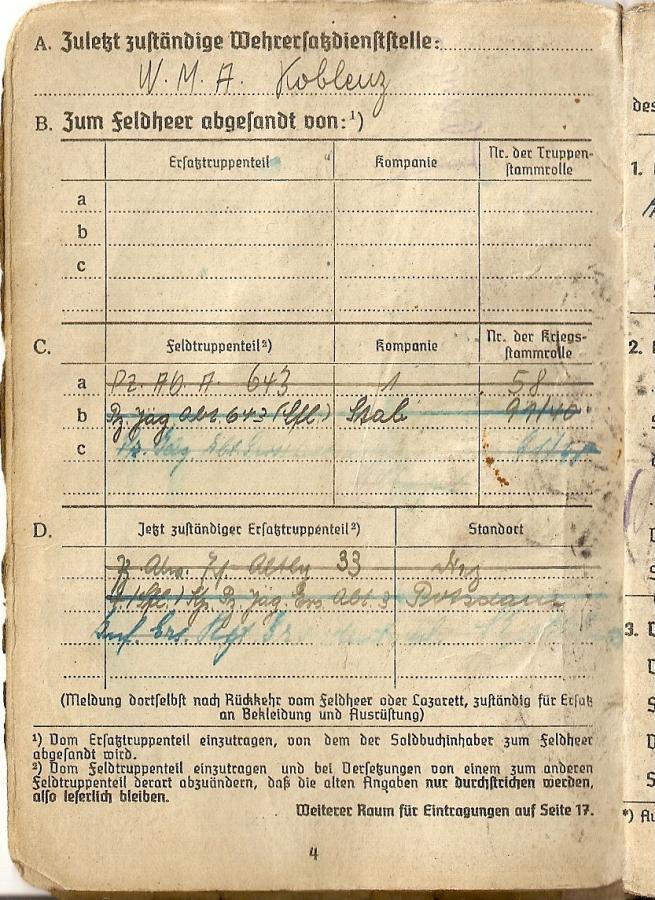 A. Zuletzt zuständige Wehrersatzdienststelle:
W. M. A. Koblenz
B. Zum Feldheer abgesandt von:¹)
Ersatztruppenteil Kompanie Nr. der Truppen-
stammrolle
a
b
c
C. Feldtruppenteil²) Kompanie Nr. der Kriegs-
stammrolle
a Pz. Ab. A. 643 1 58
b Pz. Jäg. Abt. 643 (Sfl.) Stab
c
D. Jetzt zuständiger Ersatztruppenteil²) Standort
33
Pz. Jäg. Ers. Abt. 3 Potsdam
Inf. Ers.
(Meldung dortselbst nach Rückkehr vom Feldheer oder Lazarett, zuständig für Ersatz
an Bekleidung und Ausrüstung)
¹) Vom Ersatztruppenteil einzutragen, von dem der Soldbuchinhaber zum Feldheer
abgesandt wird.
²) Vom Feldtruppenteil einzutragen und bei Versetzungen von einem zum anderen
Feldtruppenteil derart abzuändern, daß die alten Angaben nur durchstrichen werden,
also leserlich bleiben.
Weiterer Raum für Eintragungen auf Seite 17.
4
des
1.
2.
3.